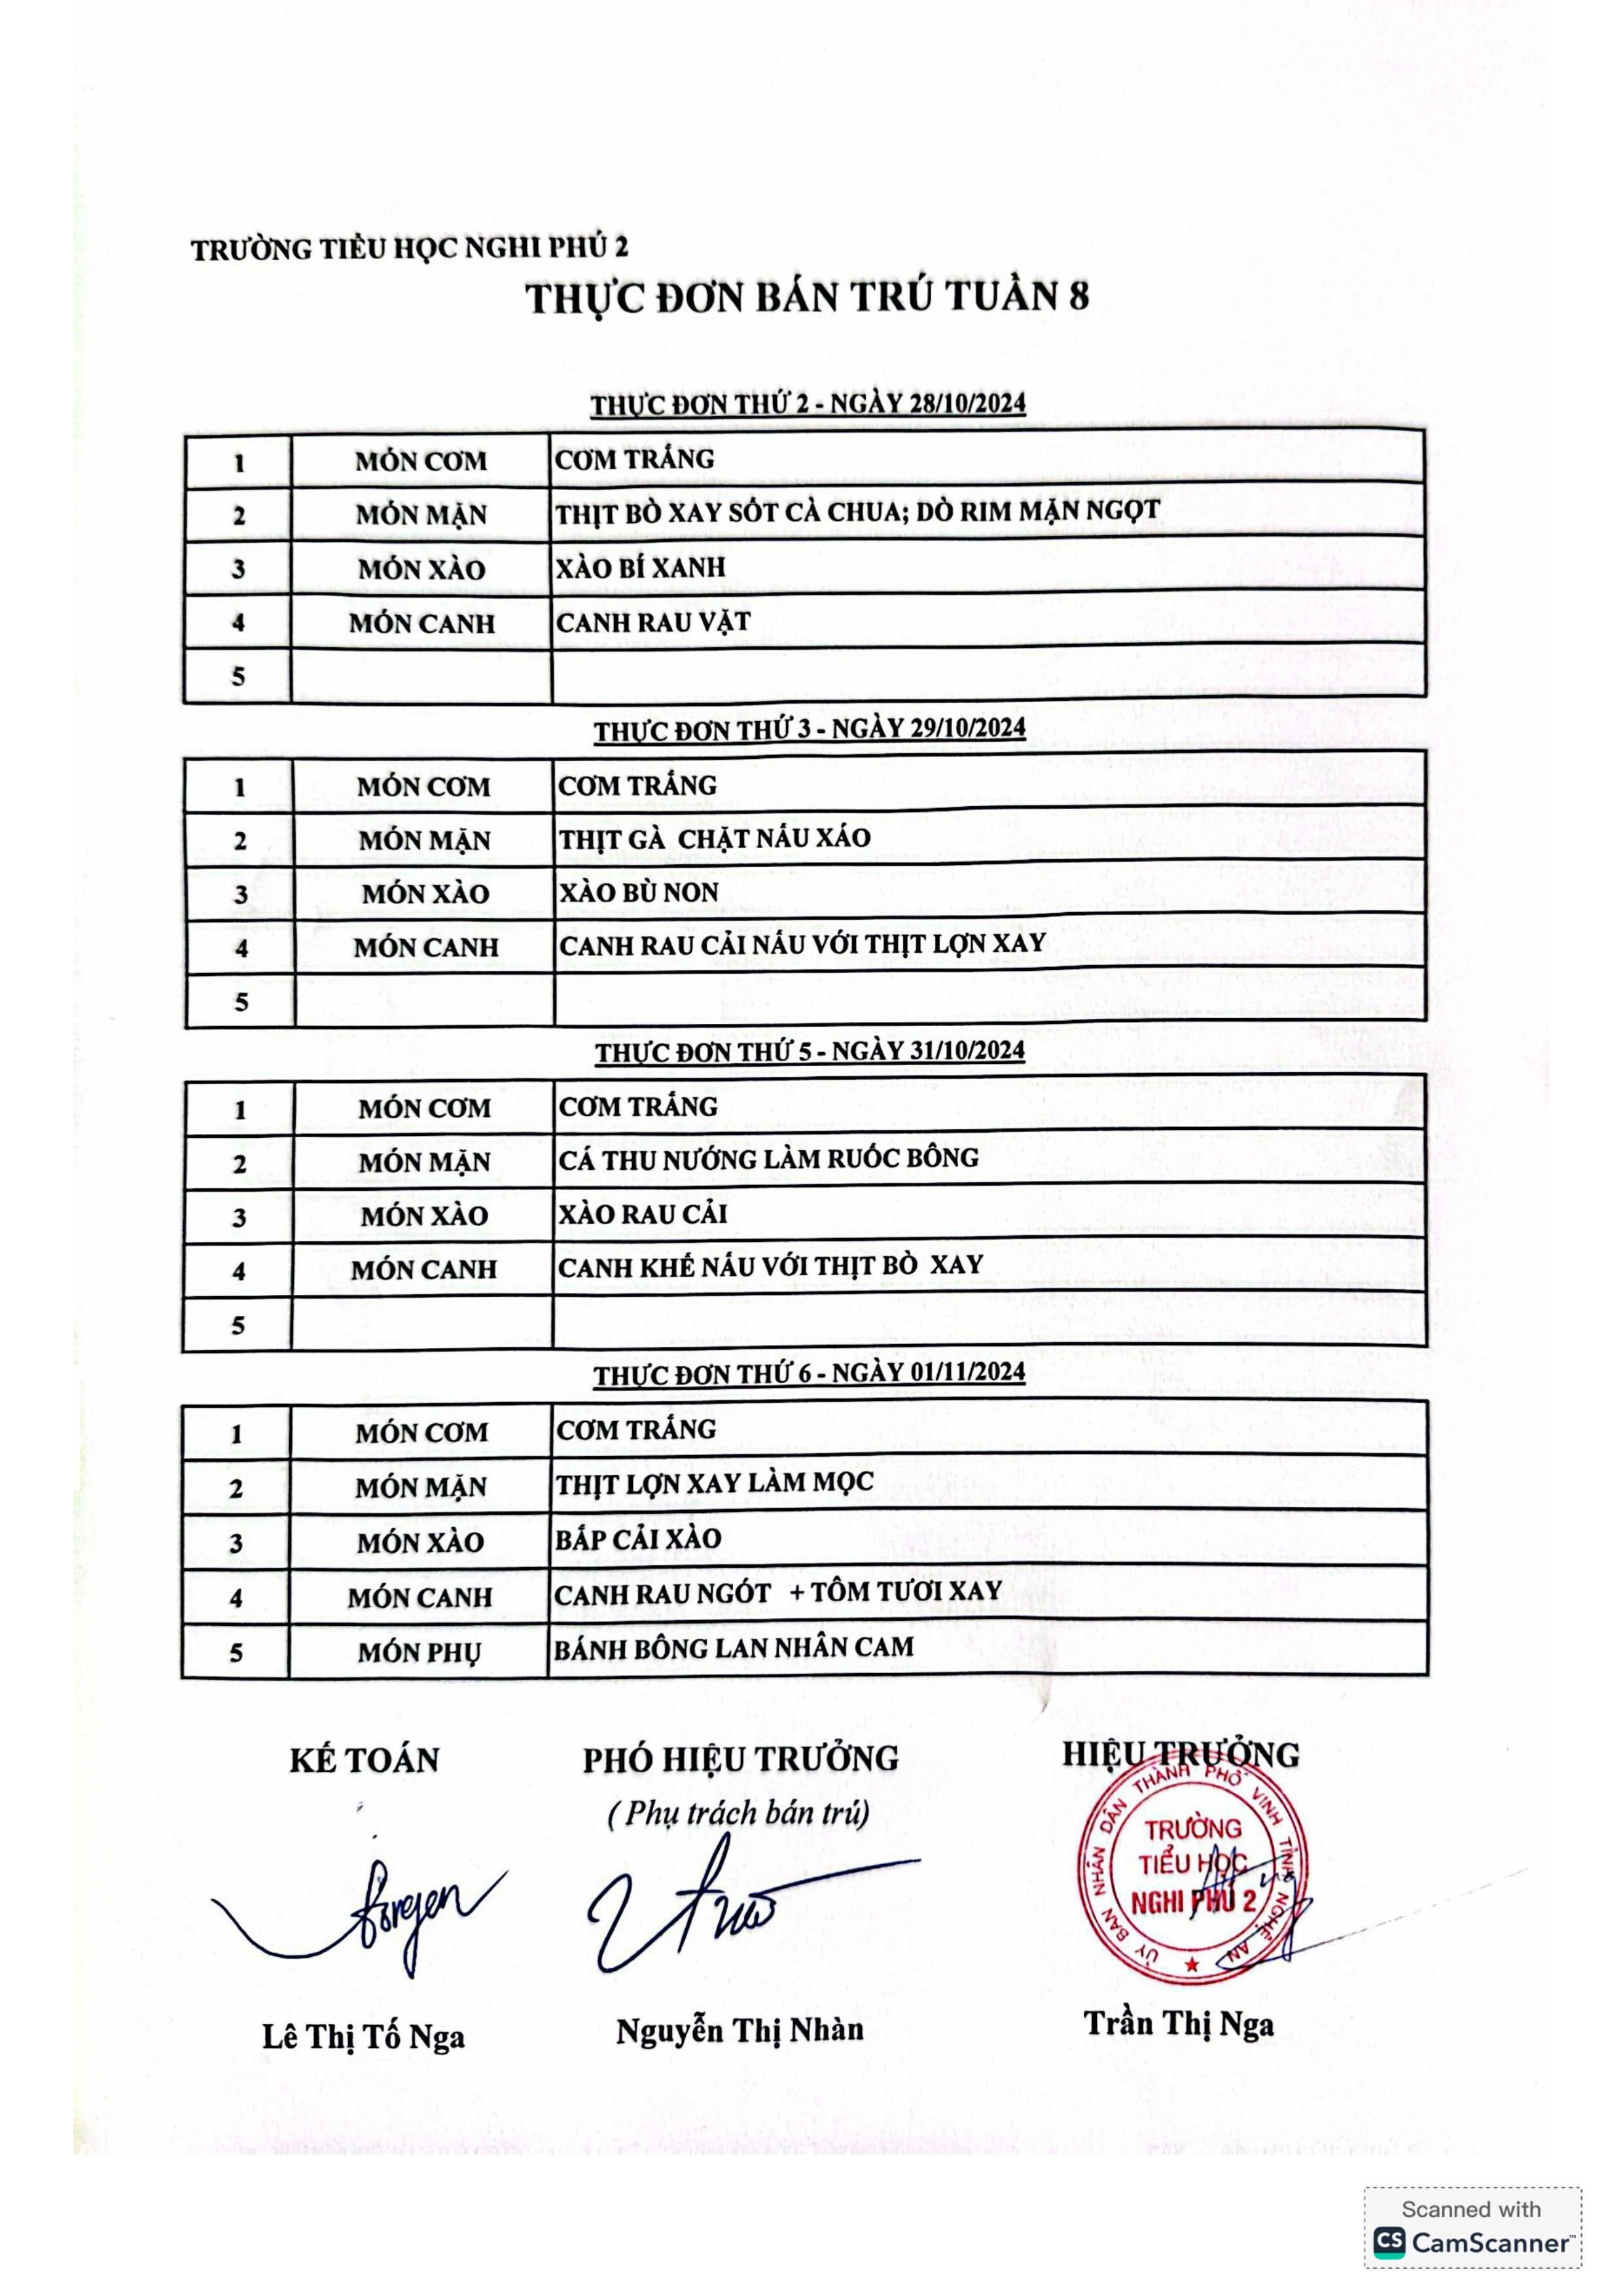 TRƯỜNG TIỂU HỌC NGHI PHÚ 2
THỰC ĐƠN BÁN TRÚ TUẦN 8
THỰC ĐƠN THỨ 2 - NGÀY 28/10/2024
1 MÓN CƠM CƠM TRẮNG
2 MÓN MẶN THỊT BÒ XAY SỐT CÀ CHUA; DÒ RIM MẶN NGỌT
3 MÓN XÀO XÀO BÍ XANH
4 MÓN CANH CANH RAU VẶT
5
THỰC ĐƠN THỨ 3 - NGÀY 29/10/2024
1 MÓN CƠM CƠM TRẮNG
2 MÓN MẶN THỊT GÀ CHẶT NẤU XÁO
3 MÓN XÀO XÀO BÙ NON
4 MÓN CANH CANH RAU CẢI NẤU VỚI THỊT LỢN XAY
5
THỰC ĐƠN THỨ 5 - NGÀY 31/10/2024
1 MÓN CƠM CƠM TRẮNG
2 MÓN MẶN CÁ THU NƯỚNG LÀM RUỐC BÔNG
3 MÓN XÀO XÀO RAU CẢI
4 MÓN CANH CANH KHẾ NẤU VỚI THỊT BÒ XAY
5
THỰC ĐƠN THỨ 6 - NGÀY 01/11/2024
1 MÓN CƠM CƠM TRẮNG
2 MÓN MẶN THỊT LỢN XAY LÀM MỌC
3 MÓN XÀO BẮP CẢI XÀO
4 MÓN CANH CANH RAU NGÓT + TÔM TƯƠI XAY
5 MÓN PHỤ BÁNH BÔNG LAN NHÂN CAM
KẾ TOÁN PHÓ HIỆU TRƯỞNG HIỆU TRƯỞNG
( Phụ trách bán trú)
ỦY BAN NHÂN DÂN THÀNH PHỐ VINH TỈNH NGHỆ AN
TRƯỜNG
TIỂU HỌC
NGHI PHÚ 2
Lê Thị Tố Nga Nguyễn Thị Nhàn Trần Thị Nga
Scanned with
CS CamScanner™